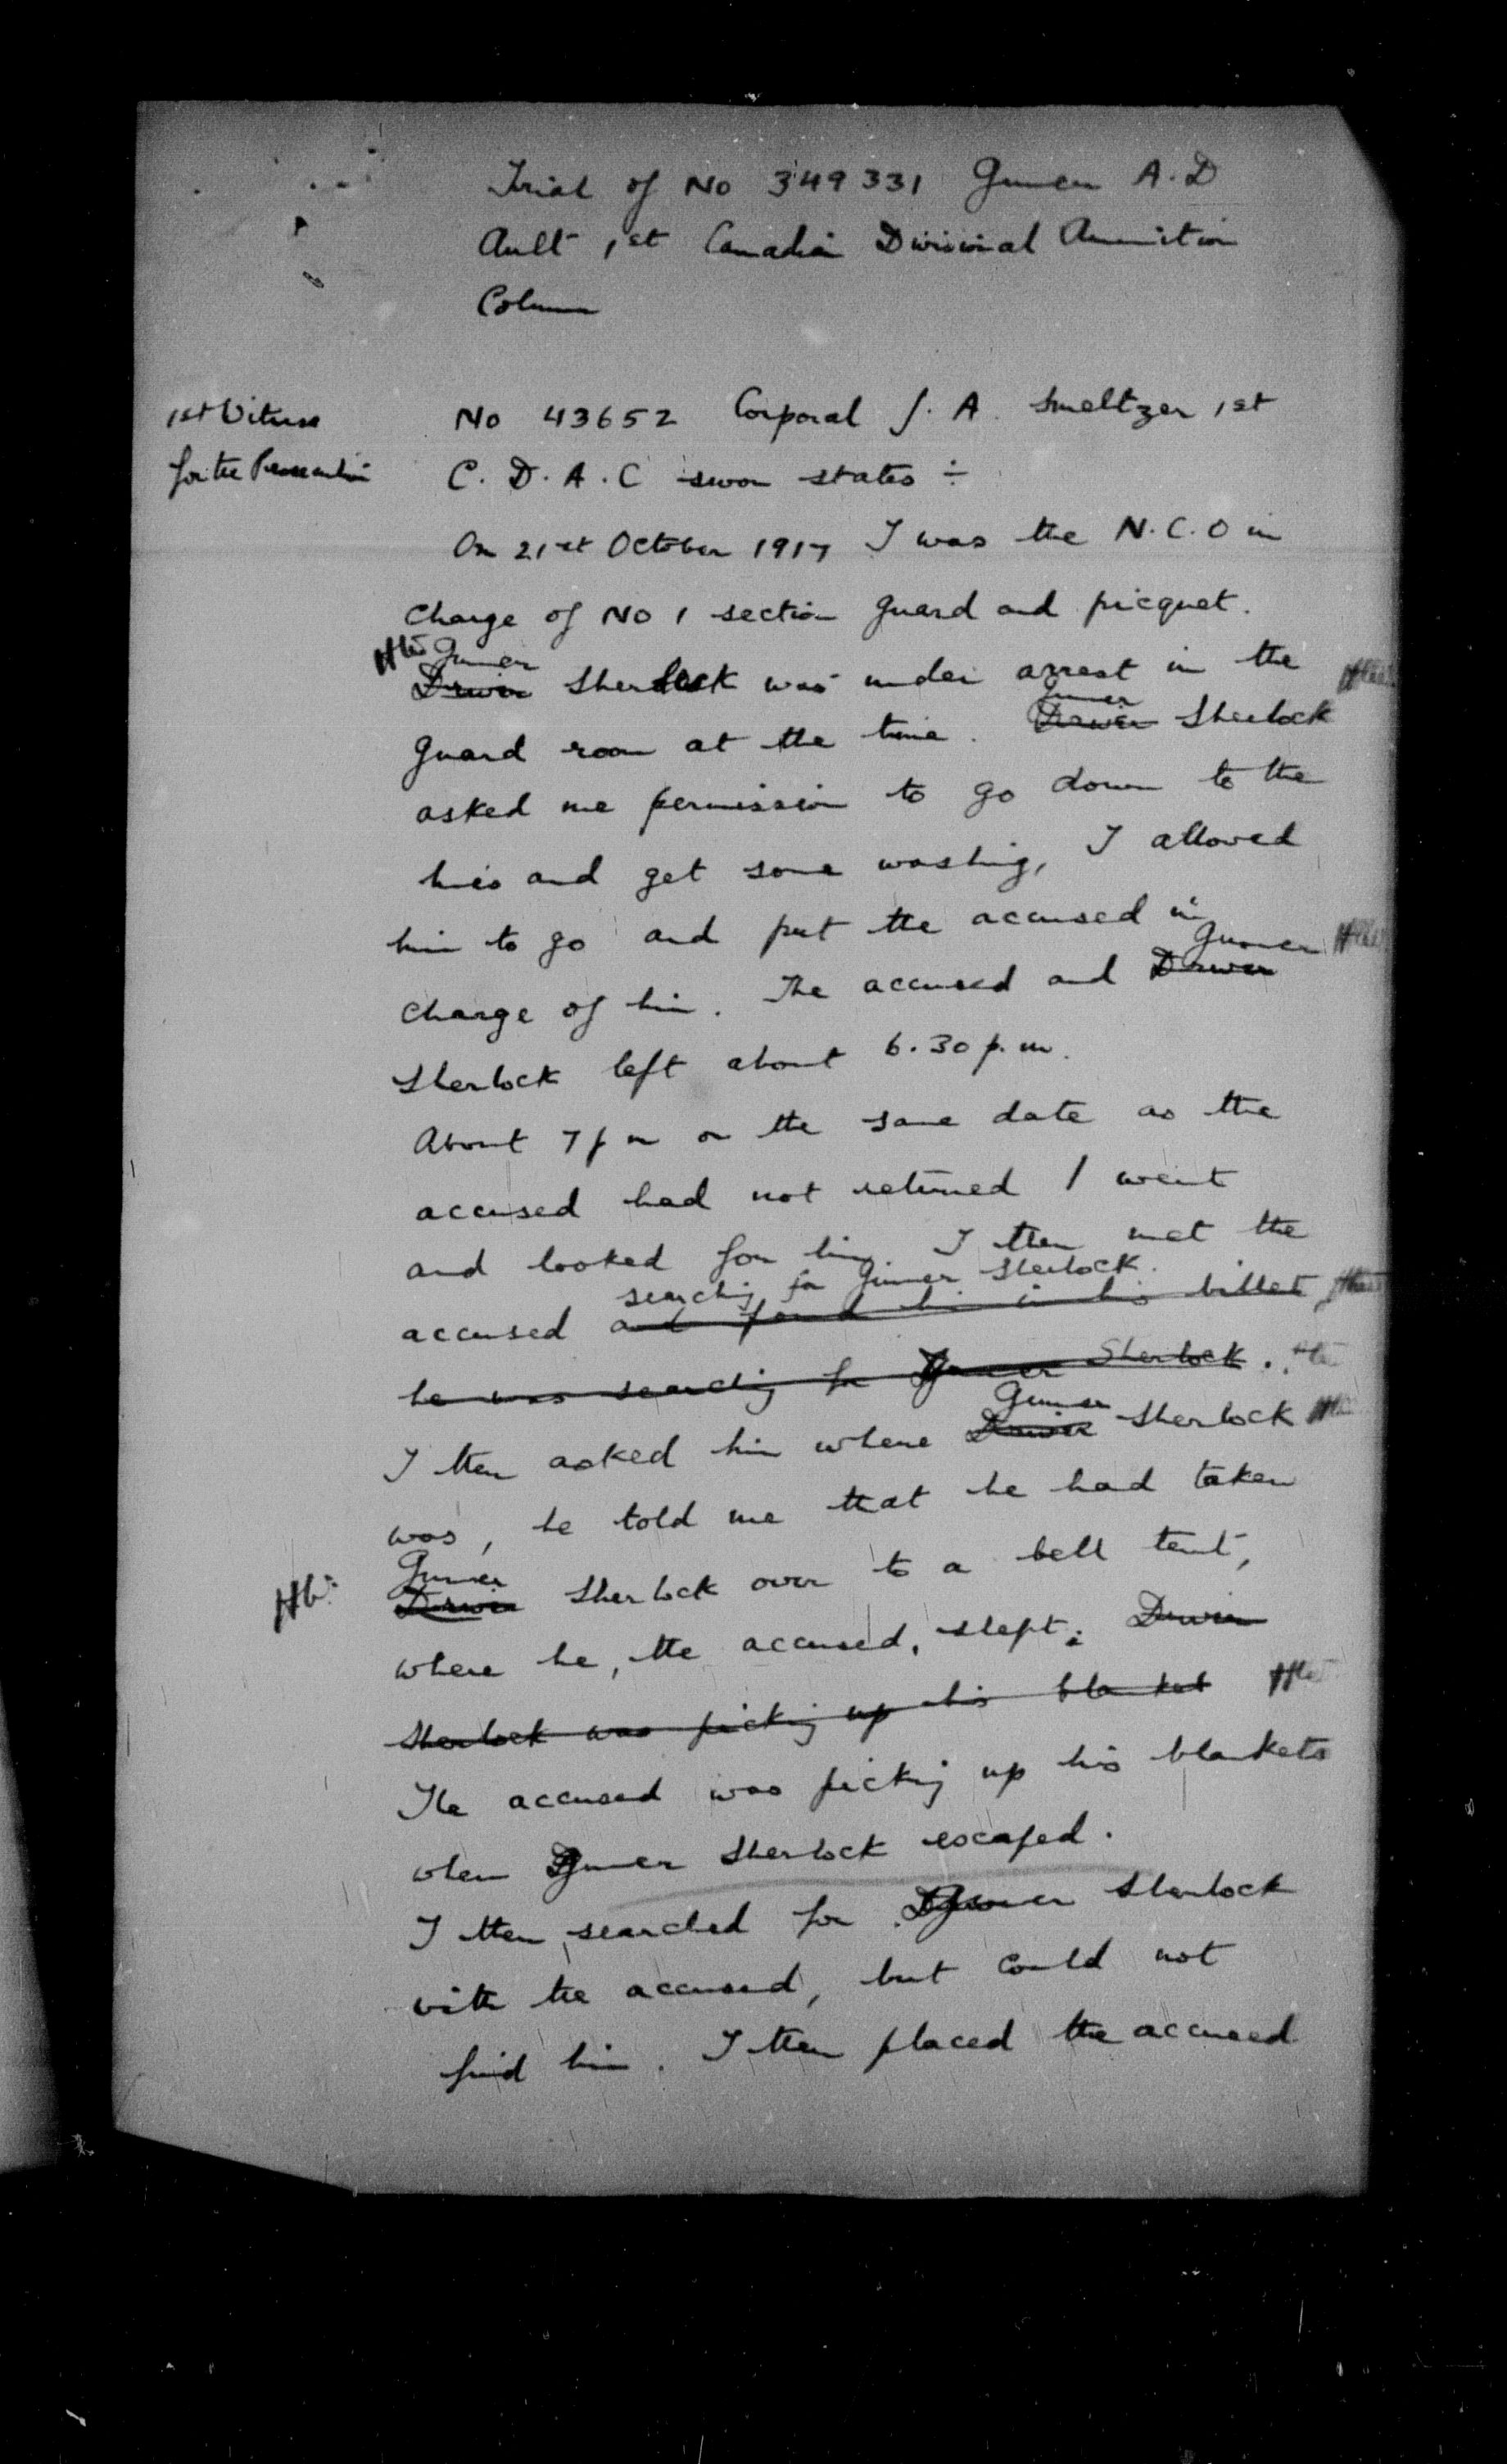 Trial of No 349331 Gunner A.D
Ault 1st Canadian Divisional Ammunition
Column
1st Witness
for the Prosecution
No 43652 Corporal J. A. Smeltzer 1st
C. D. A. C sworn states ÷
On 21st October 1917 I was the N.C.O in
Charge of No 1 section guard and picquet.
Gunner
Driver Sherlock was under arrest in the
Gunner
guard room at the time. Driver Sherlock
asked me permission to go down to the
lines and get some washing, I allowed
him to go and put the accused in
Gunner
charge of him. The accused and Driver
Sherlock left about 6.30 p.m.
About 7 p m on the same date as the
accused had not returned I went
and looked for him. I then met the
searching for Gunner Sherlock.
accused and found him in his billet
he was searching for Gunner Sherlock.
Gunner
I then asked him where Driver Sherlock
was, he told me that he had taken
Gunner
Driver Sherlock over to a bell tent,
where he, the accused, slept. Driver
Sherlock was picking up his blanket
The accused was picking up his blankets
when Gunner Sherlock escaped.
I then searched for Gunner Sherlock
with the accused, but could not
find him. I then placed the accused